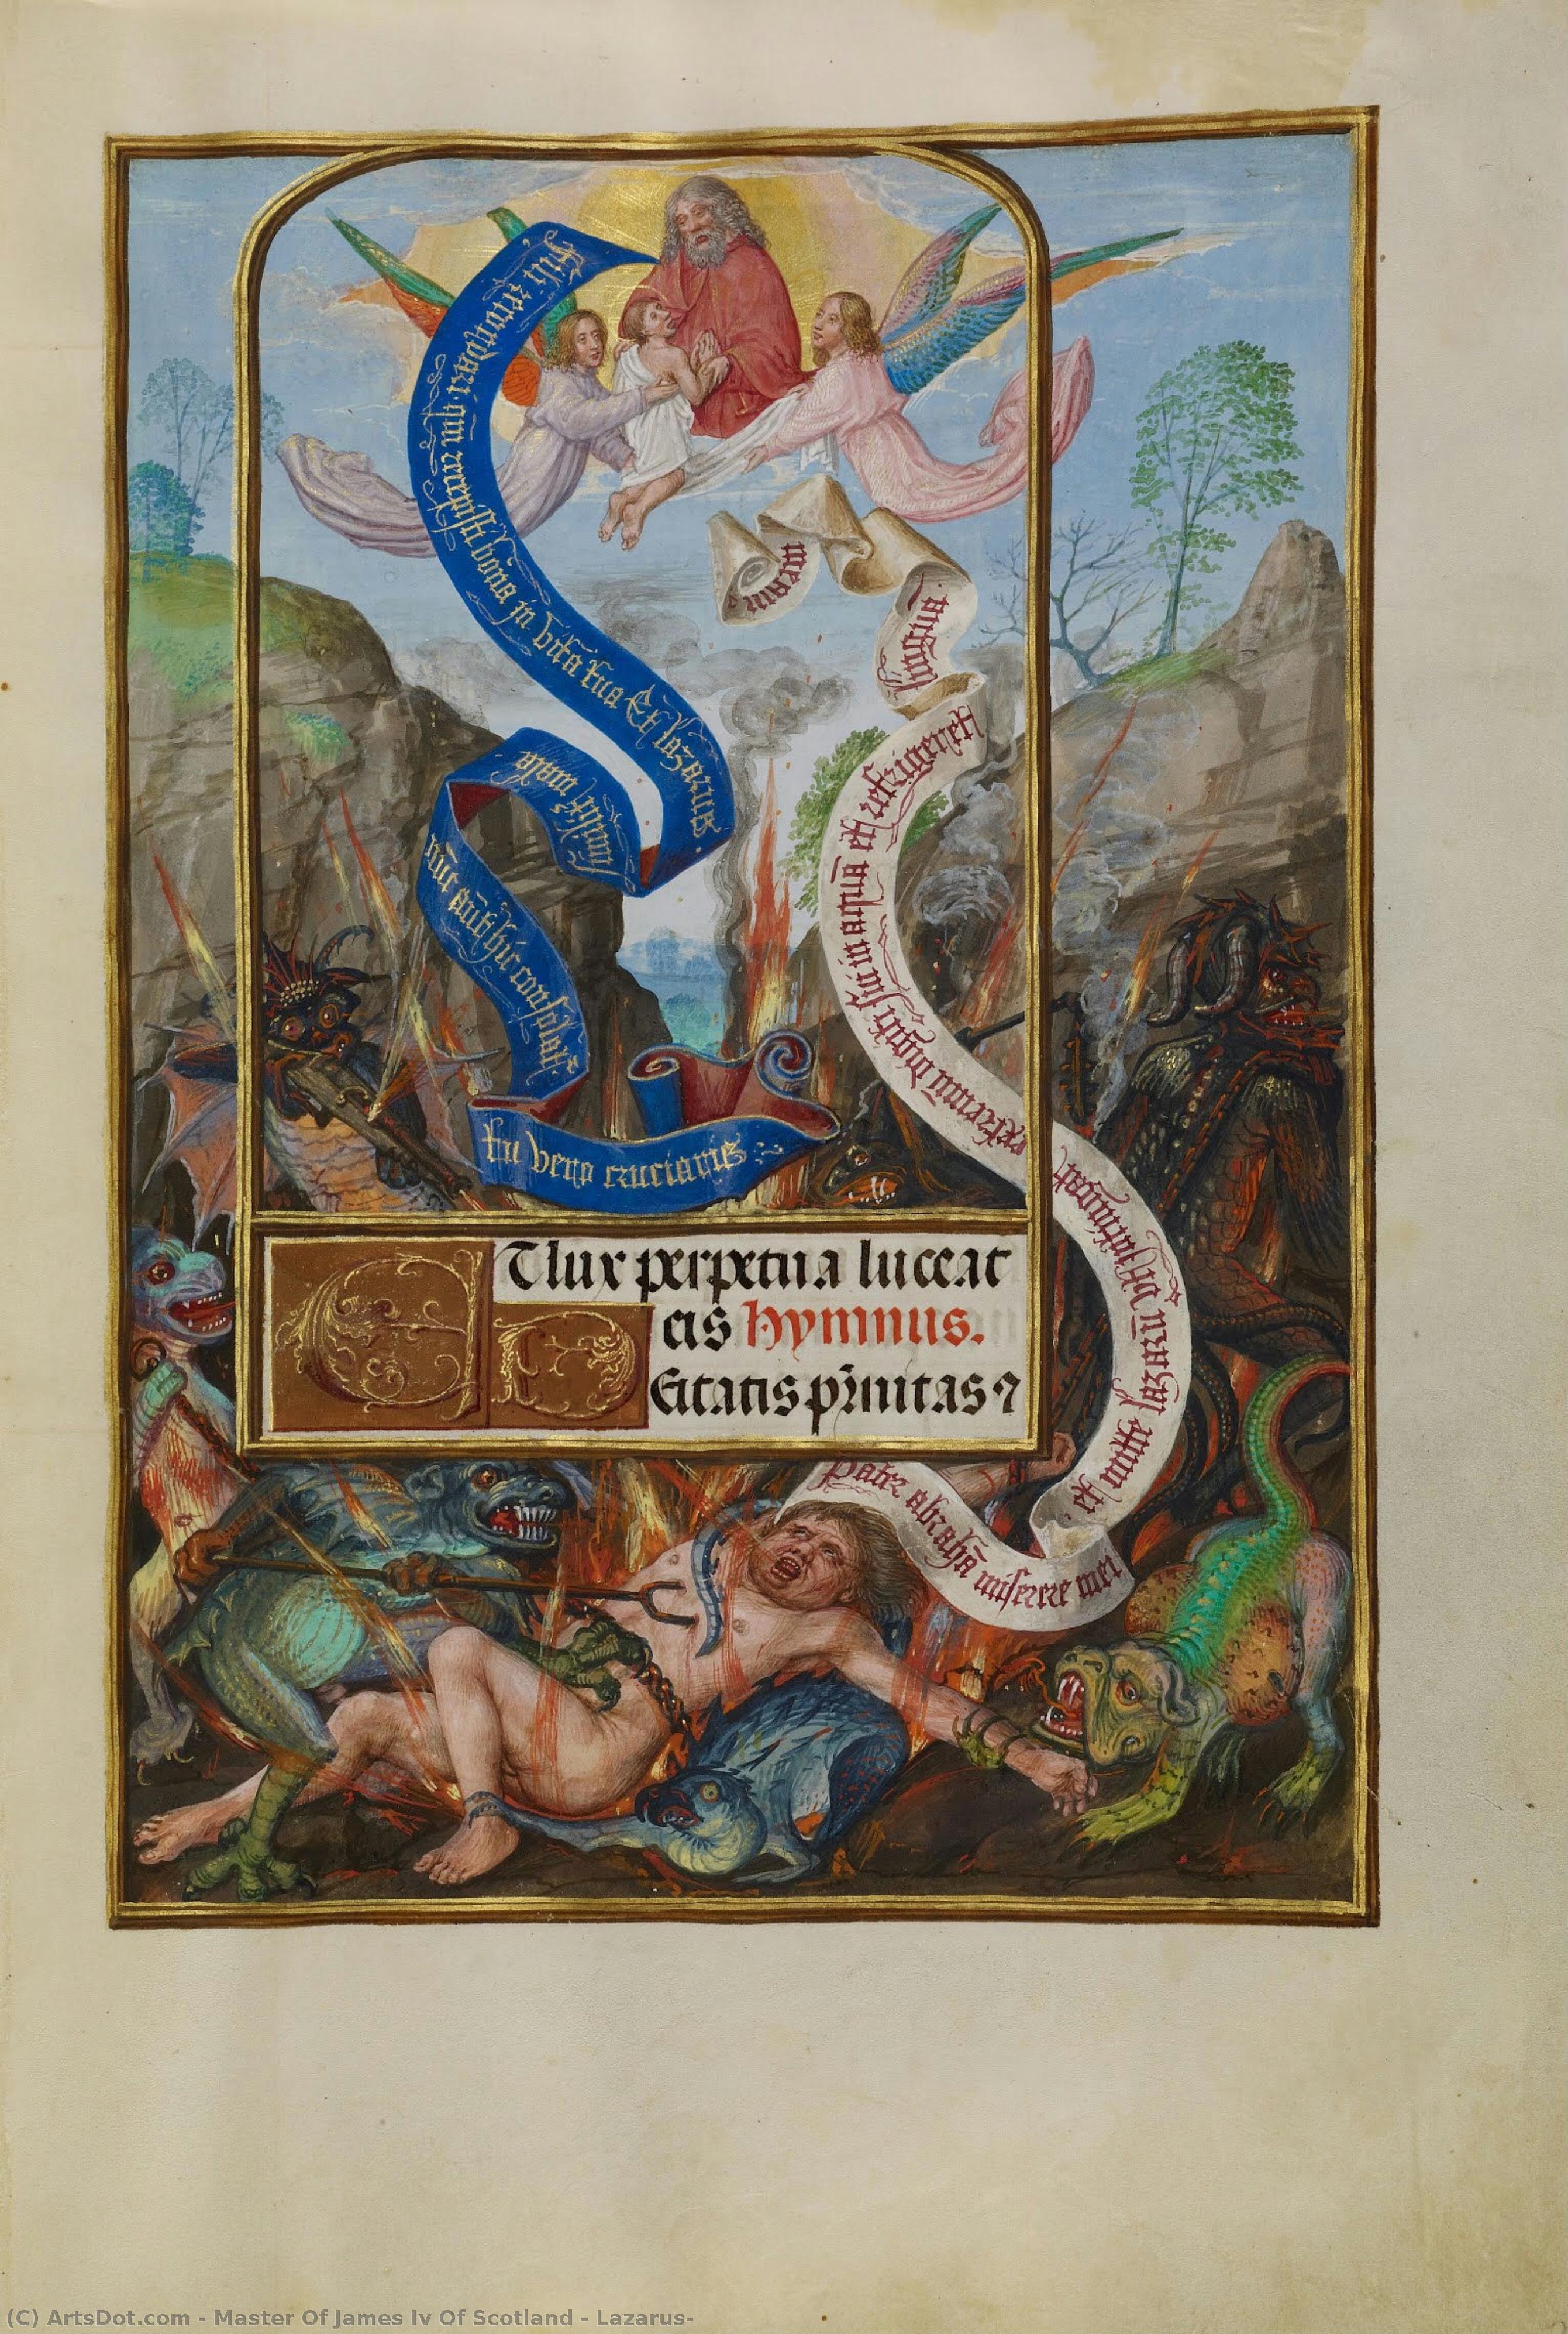 Fili recordare qm̄ recepisti bona in vita tua Et lazarus.
similit̄ mala
nūc aūt hic consolat̄
tu vero cruciaris
Pater abrahā miserere mei
et mitte lazarū ut intingat
extremū digiti sui in aquā et refrigeret
linguā.
meam
Et lux perpetua luceat
eis hymnus.
Deitatis pr̄initas ⁊
(C) ArtsDot.com - Master Of James Iv Of Scotland - Lazarus-